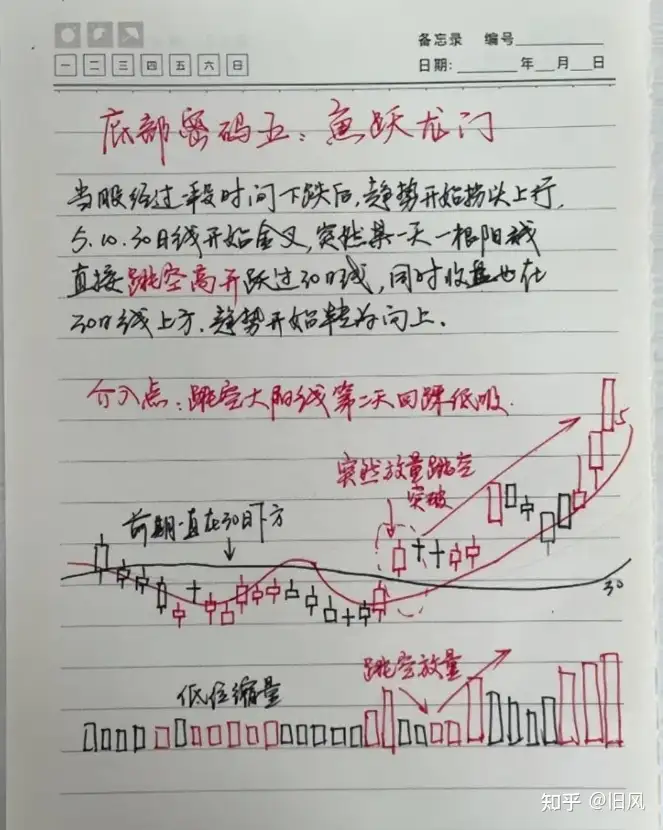 备忘录 编号
一 二 三 四 五 六 日
日期: 年 月 日
底部密码五：鱼跃龙门
当股经过一段时间下跌后，趋势开始拐以上行，
5.10.30日线开始金叉，突然某一天一根阳线
直接跳空高开跃过30日线，同时收盘也在
30日线上方，趋势开始转为向上。
介入点：跳空大阳线第二天回踩低吸.
5
突然放量跳空
突破
前期一直在30日下方
30
跳空放量
低位缩量
知乎 @旧风